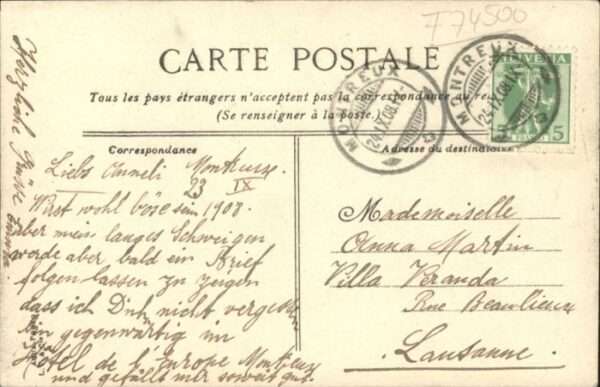 774500
CARTE POSTALE
Tous les pays étrangers n'acceptent pas la correspondance au
(Se renseigner à la poste.)
HELVETIA
5
MONTREUX
24.IX.08.
MONTREUX
25.IX.08.IX
Correspondance
Liebs Anneli Montreux.
23 IX
Wirst wohl böse sein 1908.
aber mein langes Schweigen
werde aber bald ein Brief
folgen lassen zu zeigen
dass ich Dich nicht vergessen
bin gegenwärtig im
Hôtel de l'Europe Montreux
und gefällt mir soweit gut.
Herzliche Grüsse
Adresse du destinataire
Mademoiselle
Anna Martin
Villa Veranda
Rue Beaulieux
Lausanne.